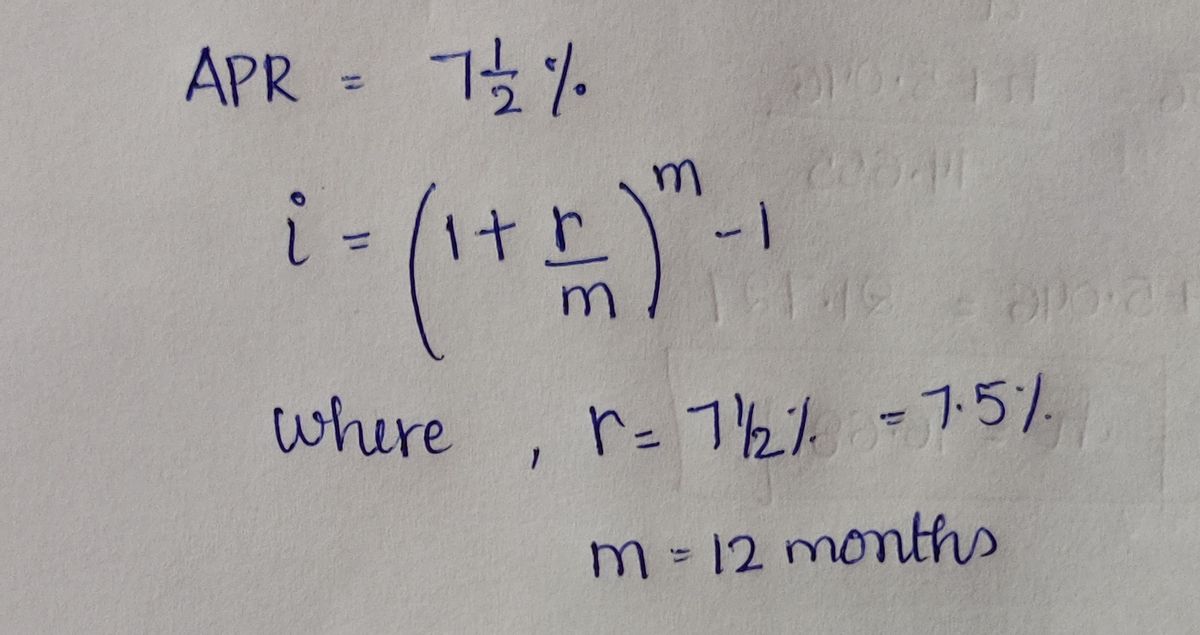 APR = 7 1/2 %
i = (1 + r/m)^m - 1
where , r = 7 1/2 % = 7.5 %
m = 12 months